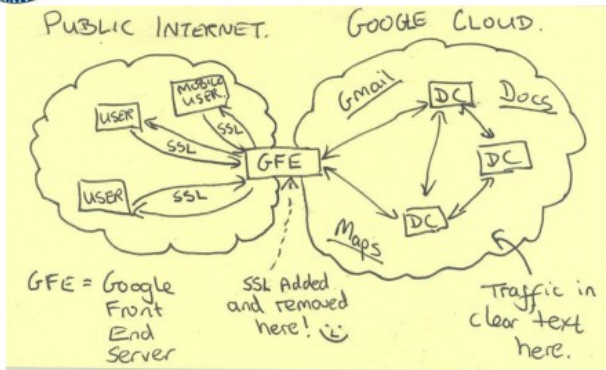 PUBLIC INTERNET.
GOOGLE CLOUD.
MOBILE
USER.
USER
SSL
SSL
USER
SSL
GFE
Gmail
DC
Docs
DC
DC
Maps
GFE = Google
Front
End
Server
SSL Added
and removed
here! :)
Traffic in
clear text
here.